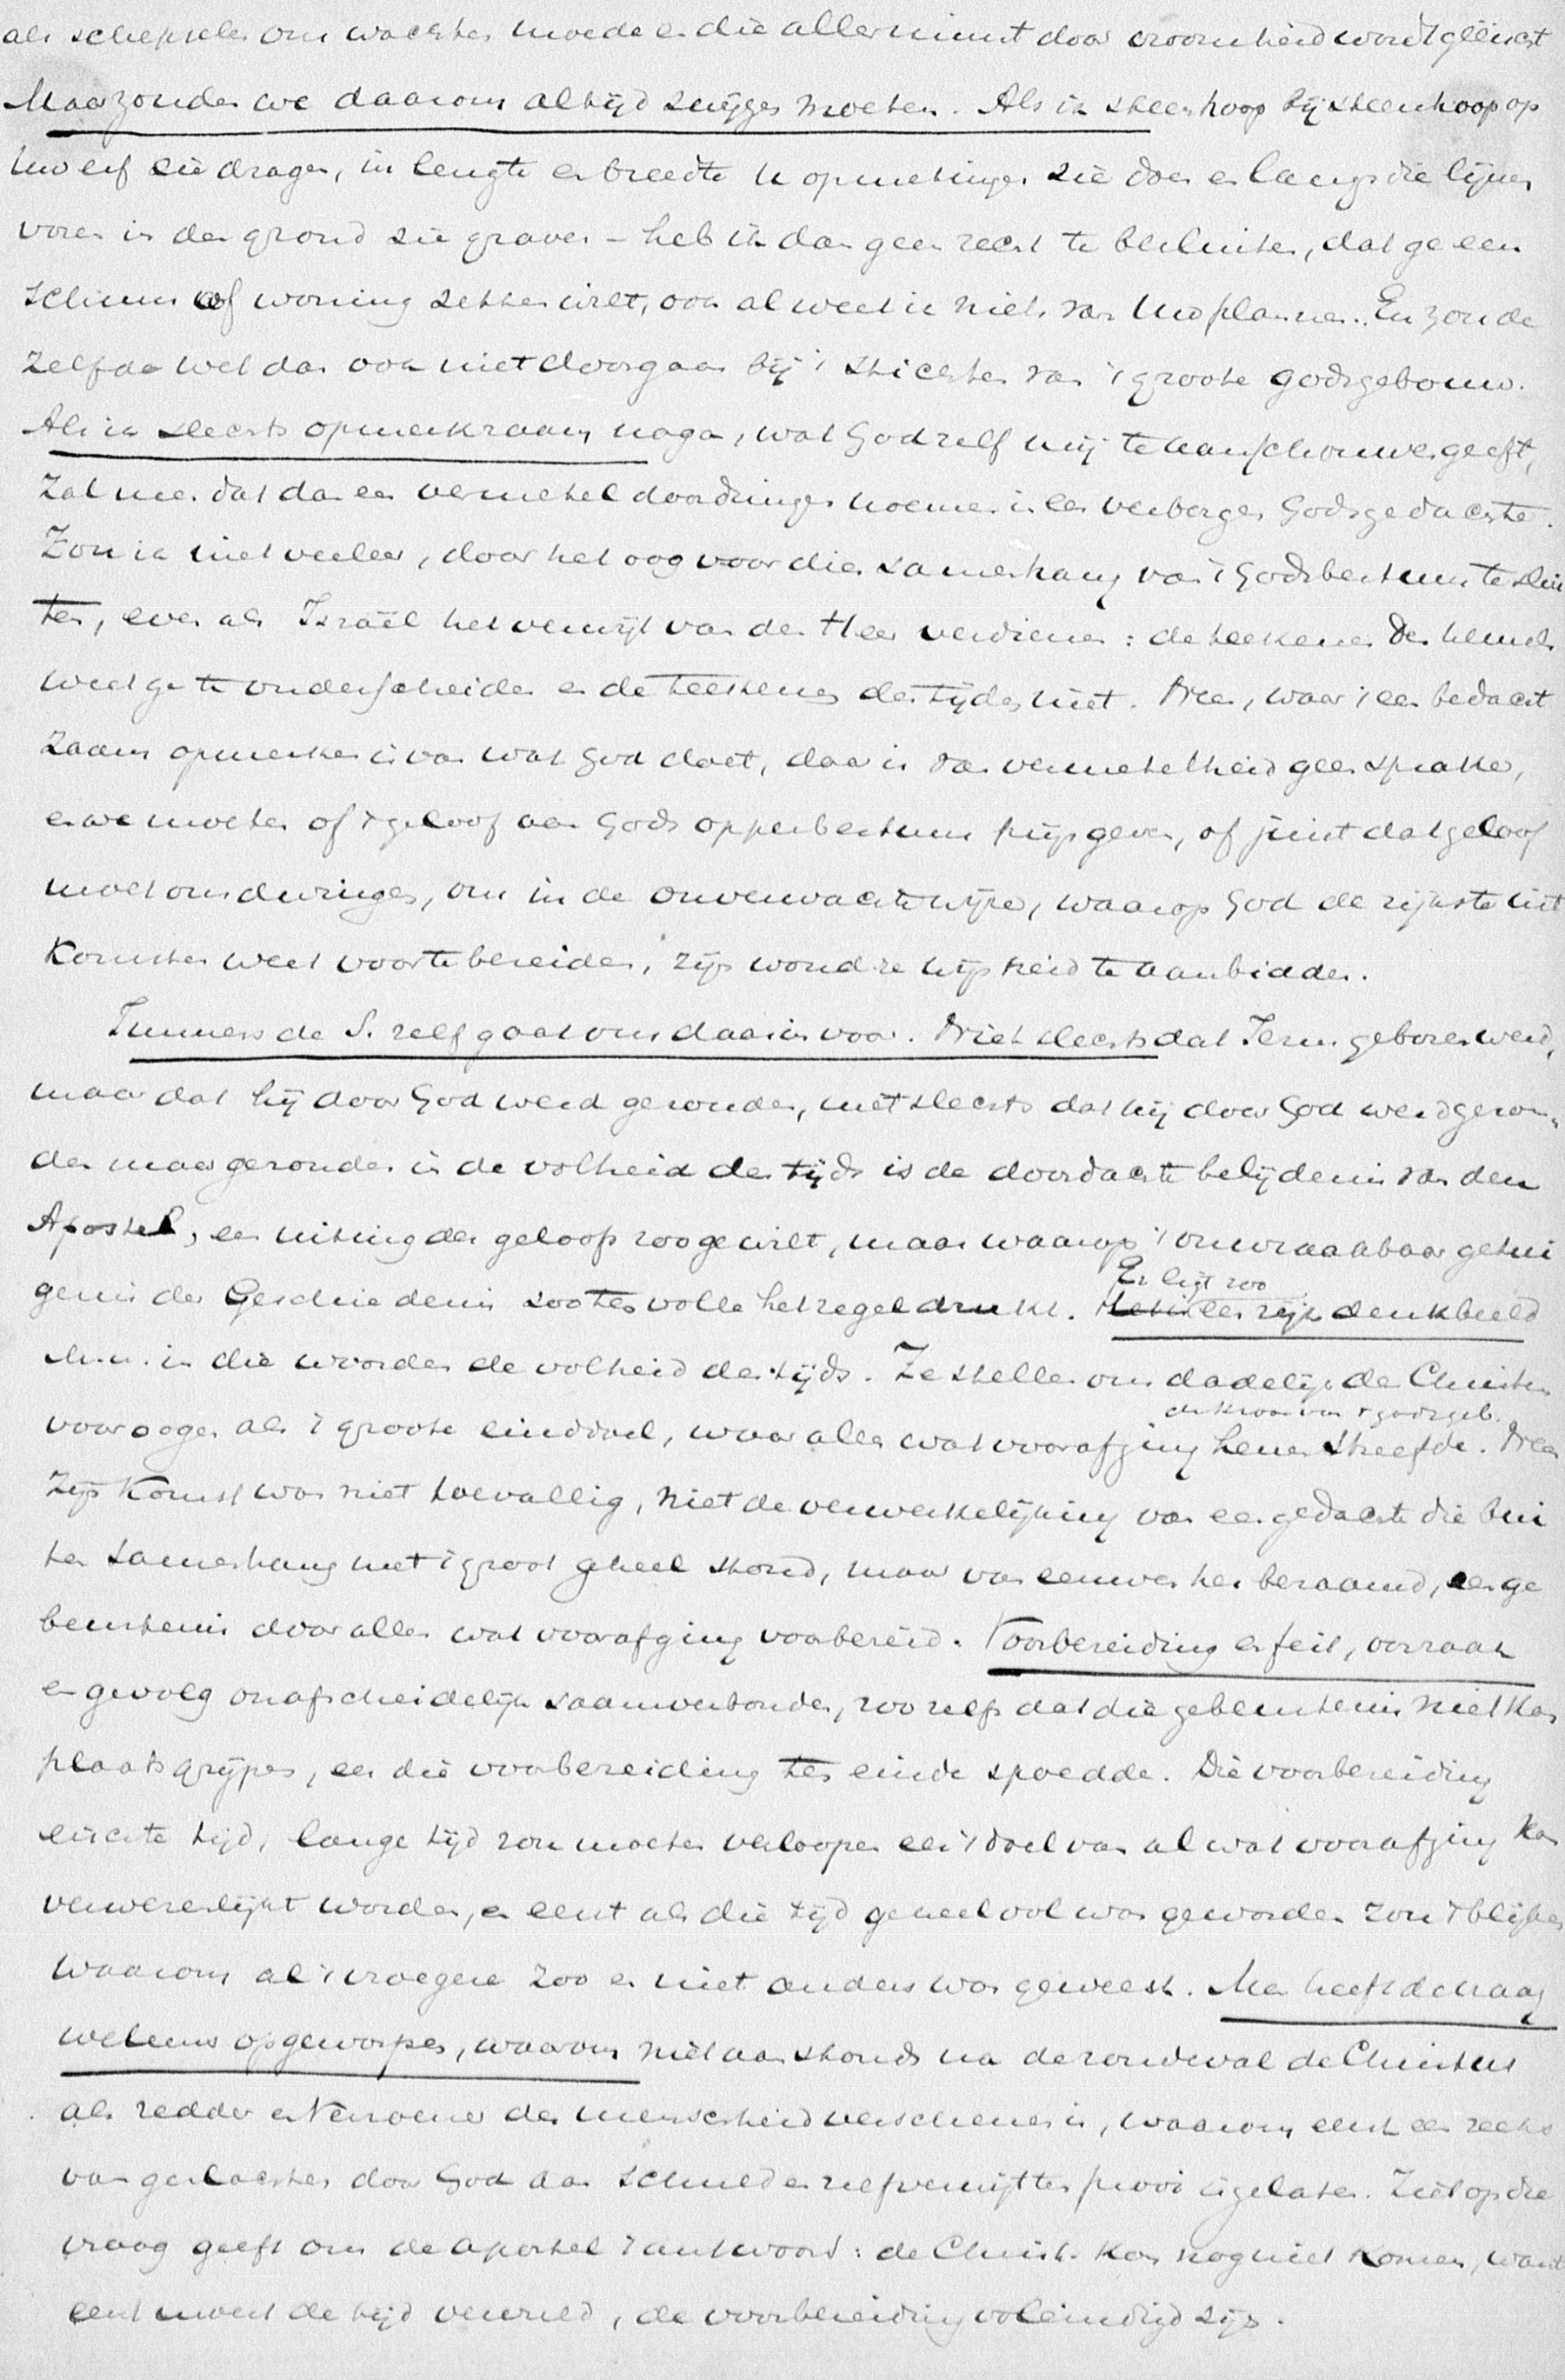 als schepselen ons wachten moeden en die allerminst door vroomheid wordt geëischt
Maar zouden we daarom altijd zwijgen moeten. Als ik steenhoop bij steenhoop op
Uw erf zie dragen, in lengte en breedte U opmetingen zie doen en langs die lijnen
voren in den grond zie graven – heb ik dan geen recht te besluiten, dat ge een
schuur of woning zetten wilt, ook al weet ik niets van Uw plannen. En zou de
zelfde wet dan ook niet doorgaan bij 't stichten van 't groote godsgebouw.
Als ik slechts opmerkzaam naga, wat God zelf mij te aanschouwen geeft,
zal men dat dan een vermetel doordringen noemen in een verborgen Godsgedachte.
Zou ik niet veeleer, door het oog voor dien samenhang van 't Godsbestuur te slui
ten, even als Israël het verwijt van den Heer verdienen: de teekenen des hemels
weet ge te onderscheiden en de teekenen der tijden niet. Neen, waar 't een bedacht
zaam opmerken is van wat God doet, daar is van vermetelheid geen sprake,
en we moeten of 't geloof aan Gods opperbestuur prijsgeven, of juist dat geloof
moet ons dwingen, om in de onverwachte wijze, waarop God de rijkste uit
komsten weet voor te bereiden, zijn wondre wijsheid te aanbidden.
Immers de S. zelf gaat ons daarin voor. Niet slechts dat Jezus geboren werd,
maar dat hij door God werd gezonden, niet slechts dat hij door God werd gezon-
den maar gezonden in de volheid des tijds is de doordachte belijdenis van den
Apostel, een uiting des geloofs zoo ge wilt, maar waarop 't onwraakbaar getui
genis der Geschiedenis zoo ten volle het zegel drukt. Er ligt zoo een rijk denkbeeld
m.n. in die woorden de volheid des tijds. Ze stellen ons dadelijk den Christus
de kroon van 't godsgeb.
voor oogen als 't groote einddoel, waar alles wat voorafging henen streefde. Neen
Zijn komst was niet toevallig, niet de verwerkelijking van een gedachte die bui
ten samenhang met 't groot geheel stond, maar van eeuwen her beraamd, een ge
beurtenis door alles wat voorafging voorbereid. Voorbereiding en feit, oorzaak
en gevolg onafscheidelijk saamverbonden, zoo zelfs dat die gebeurtenis niet kon
plaats grijpen, eer die voorbereiding ten einde spoedde. Die voorbereiding
eischte tijd, lange tijd zou moeten verloopen eer 't doel van al wat voorafging kon
verwezenlijkt worden, en eerst als die tijd geheel vol was geworden zou 't blijken
waarom al 't vroegere zoo en niet anders was geweest. Men heeft de vraag
wel eens opgeworpen, waarom niet aanstonds na de zondeval de Christus
als redder en Verzoener der menschheid verschenen is, waarom eerst een reeks
van geslachten door God aan schuld en zelfverwijt ten prooi is gelaten. Ziet op die
vraag geeft ons de Apostel 't antwoord: de Christ. kon nog niet komen, want
eerst moest de tijd vervuld, de voorbereiding voleindigd zijn.